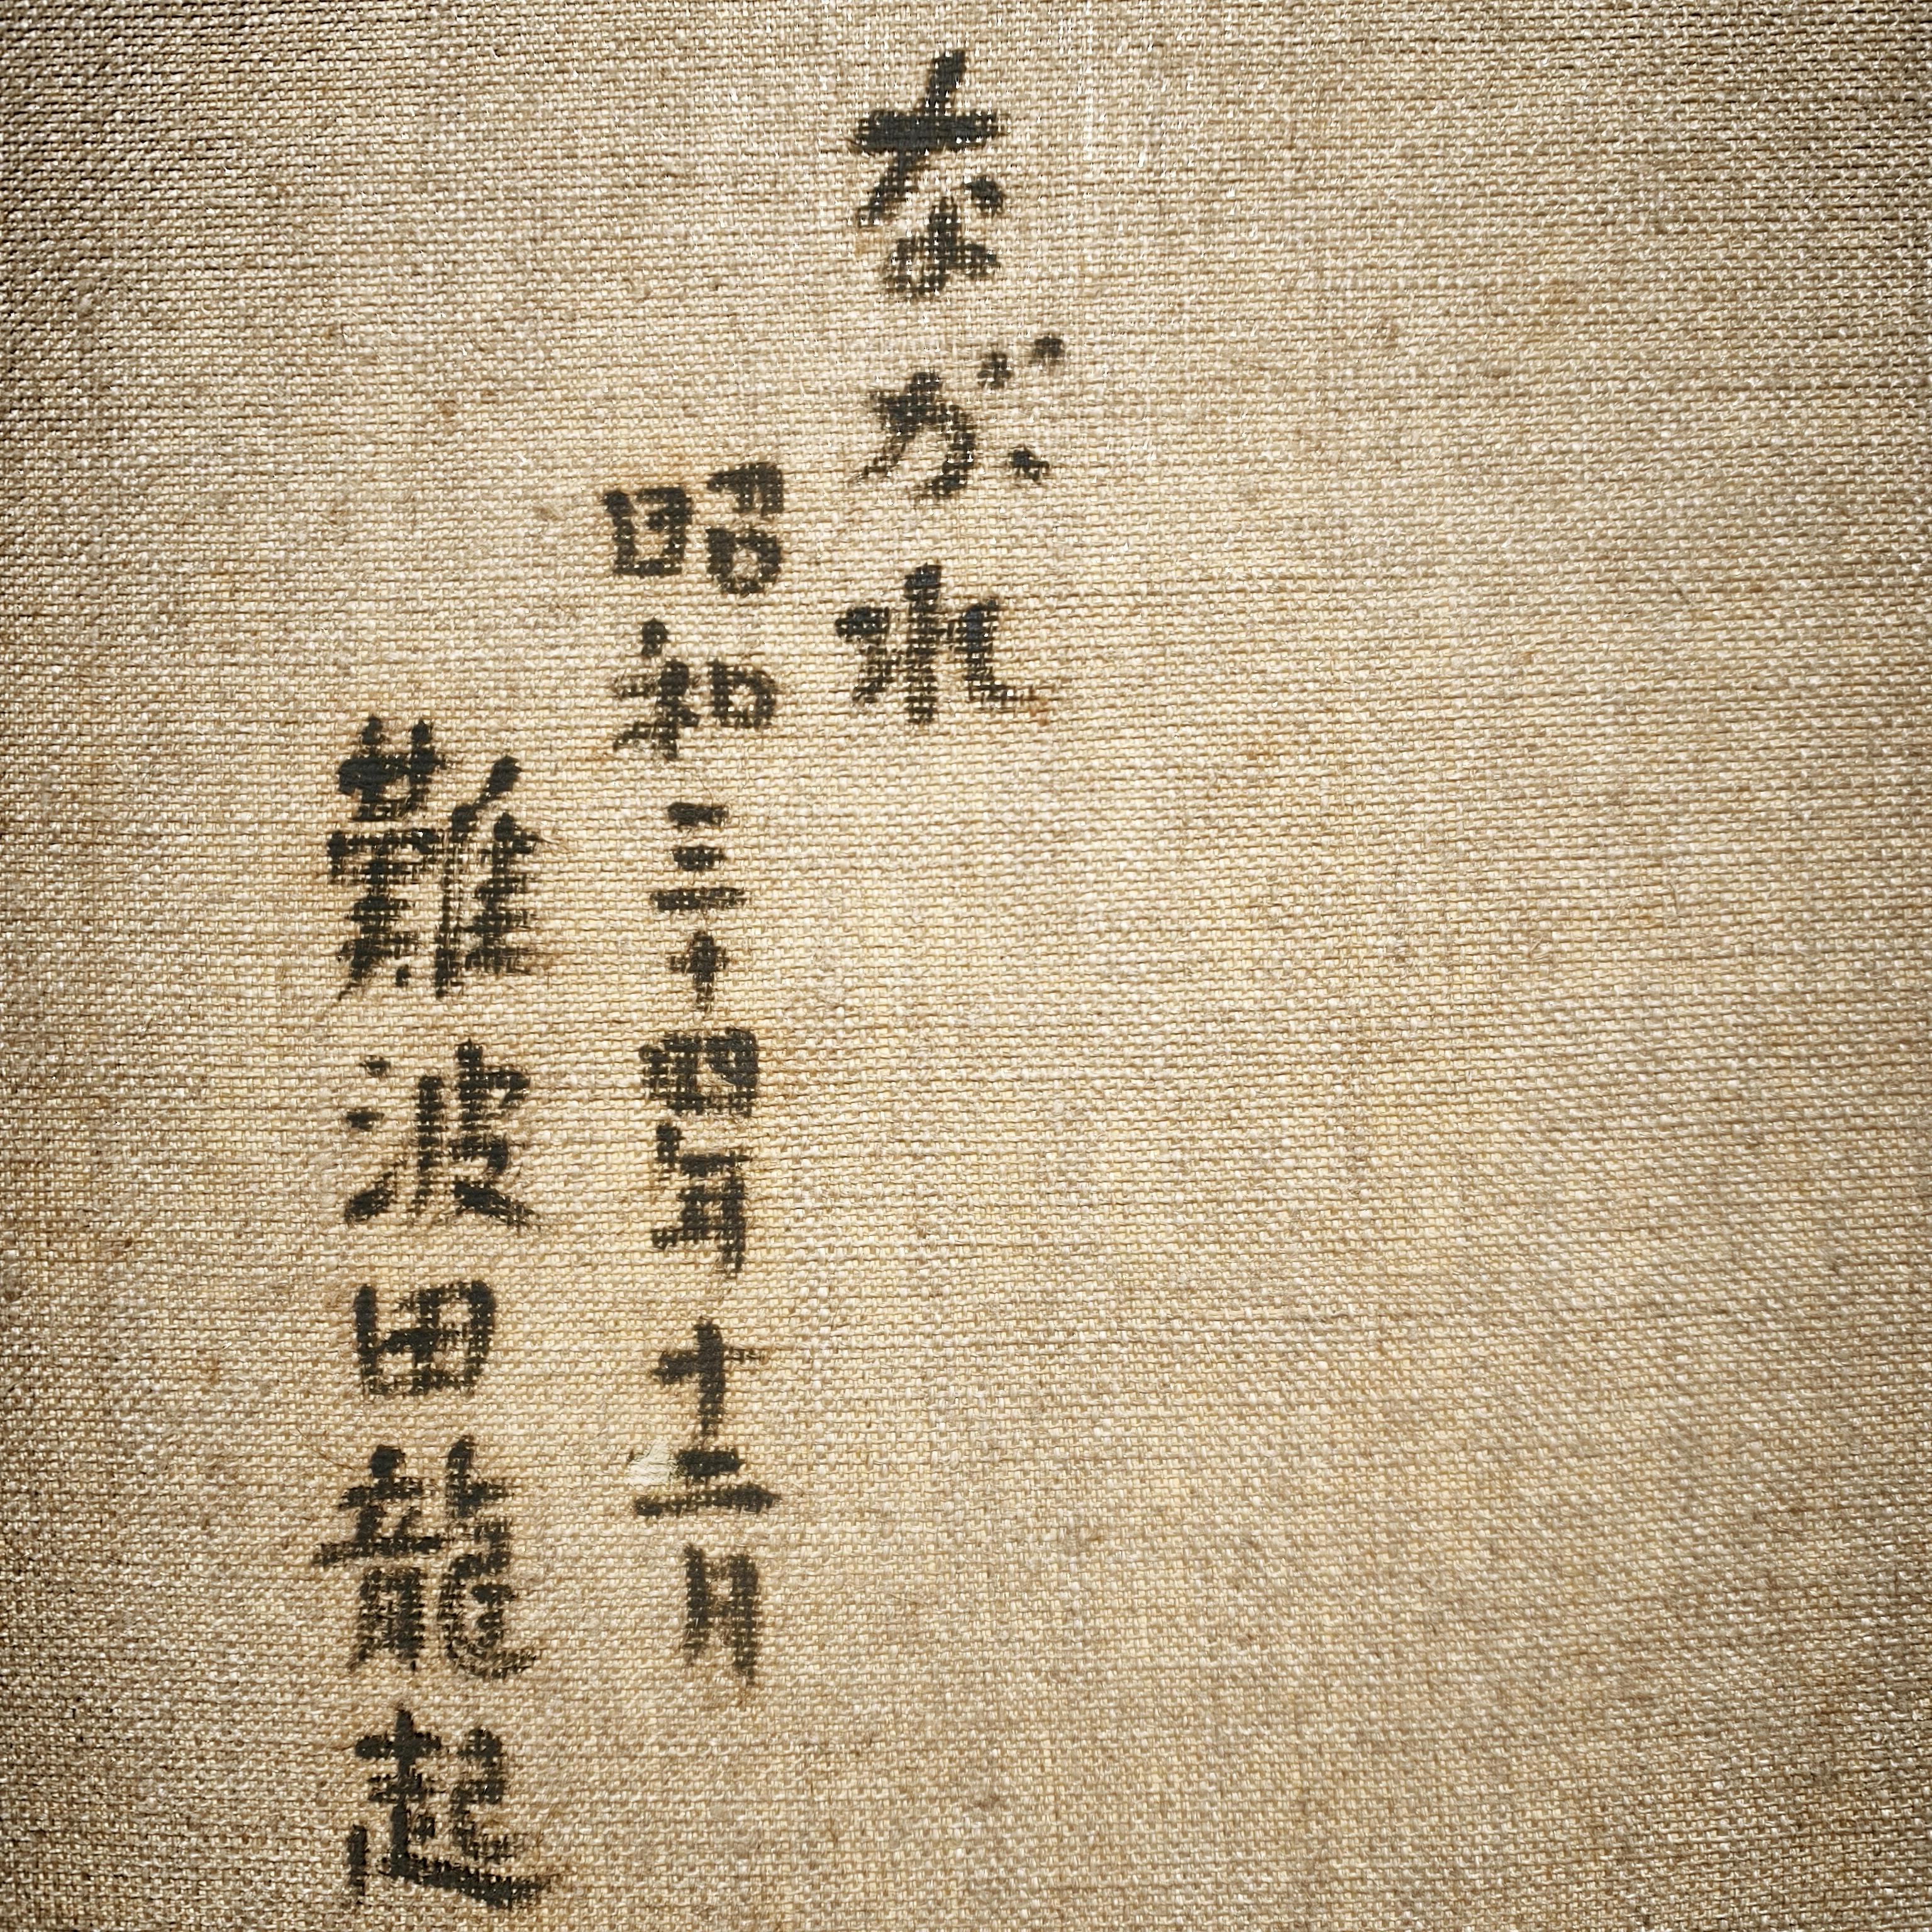 ながれ
昭和三十四年十二月
難波田龍起